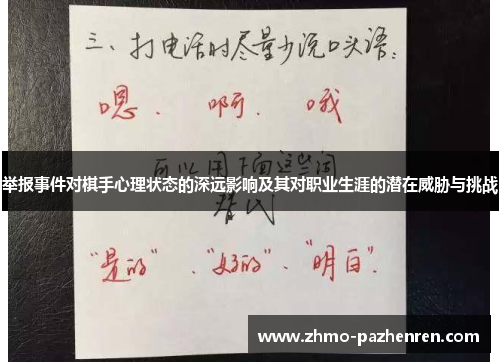 三、打电话时尽量少说口头语：
嗯. 啊. 哦
可以用下面这些词
举报事件对棋手心理状态的深远影响及其对职业生涯的潜在威胁与挑战
替代
“是的”、“好的”、“明白”.
www.zhmo-pazhenren.com